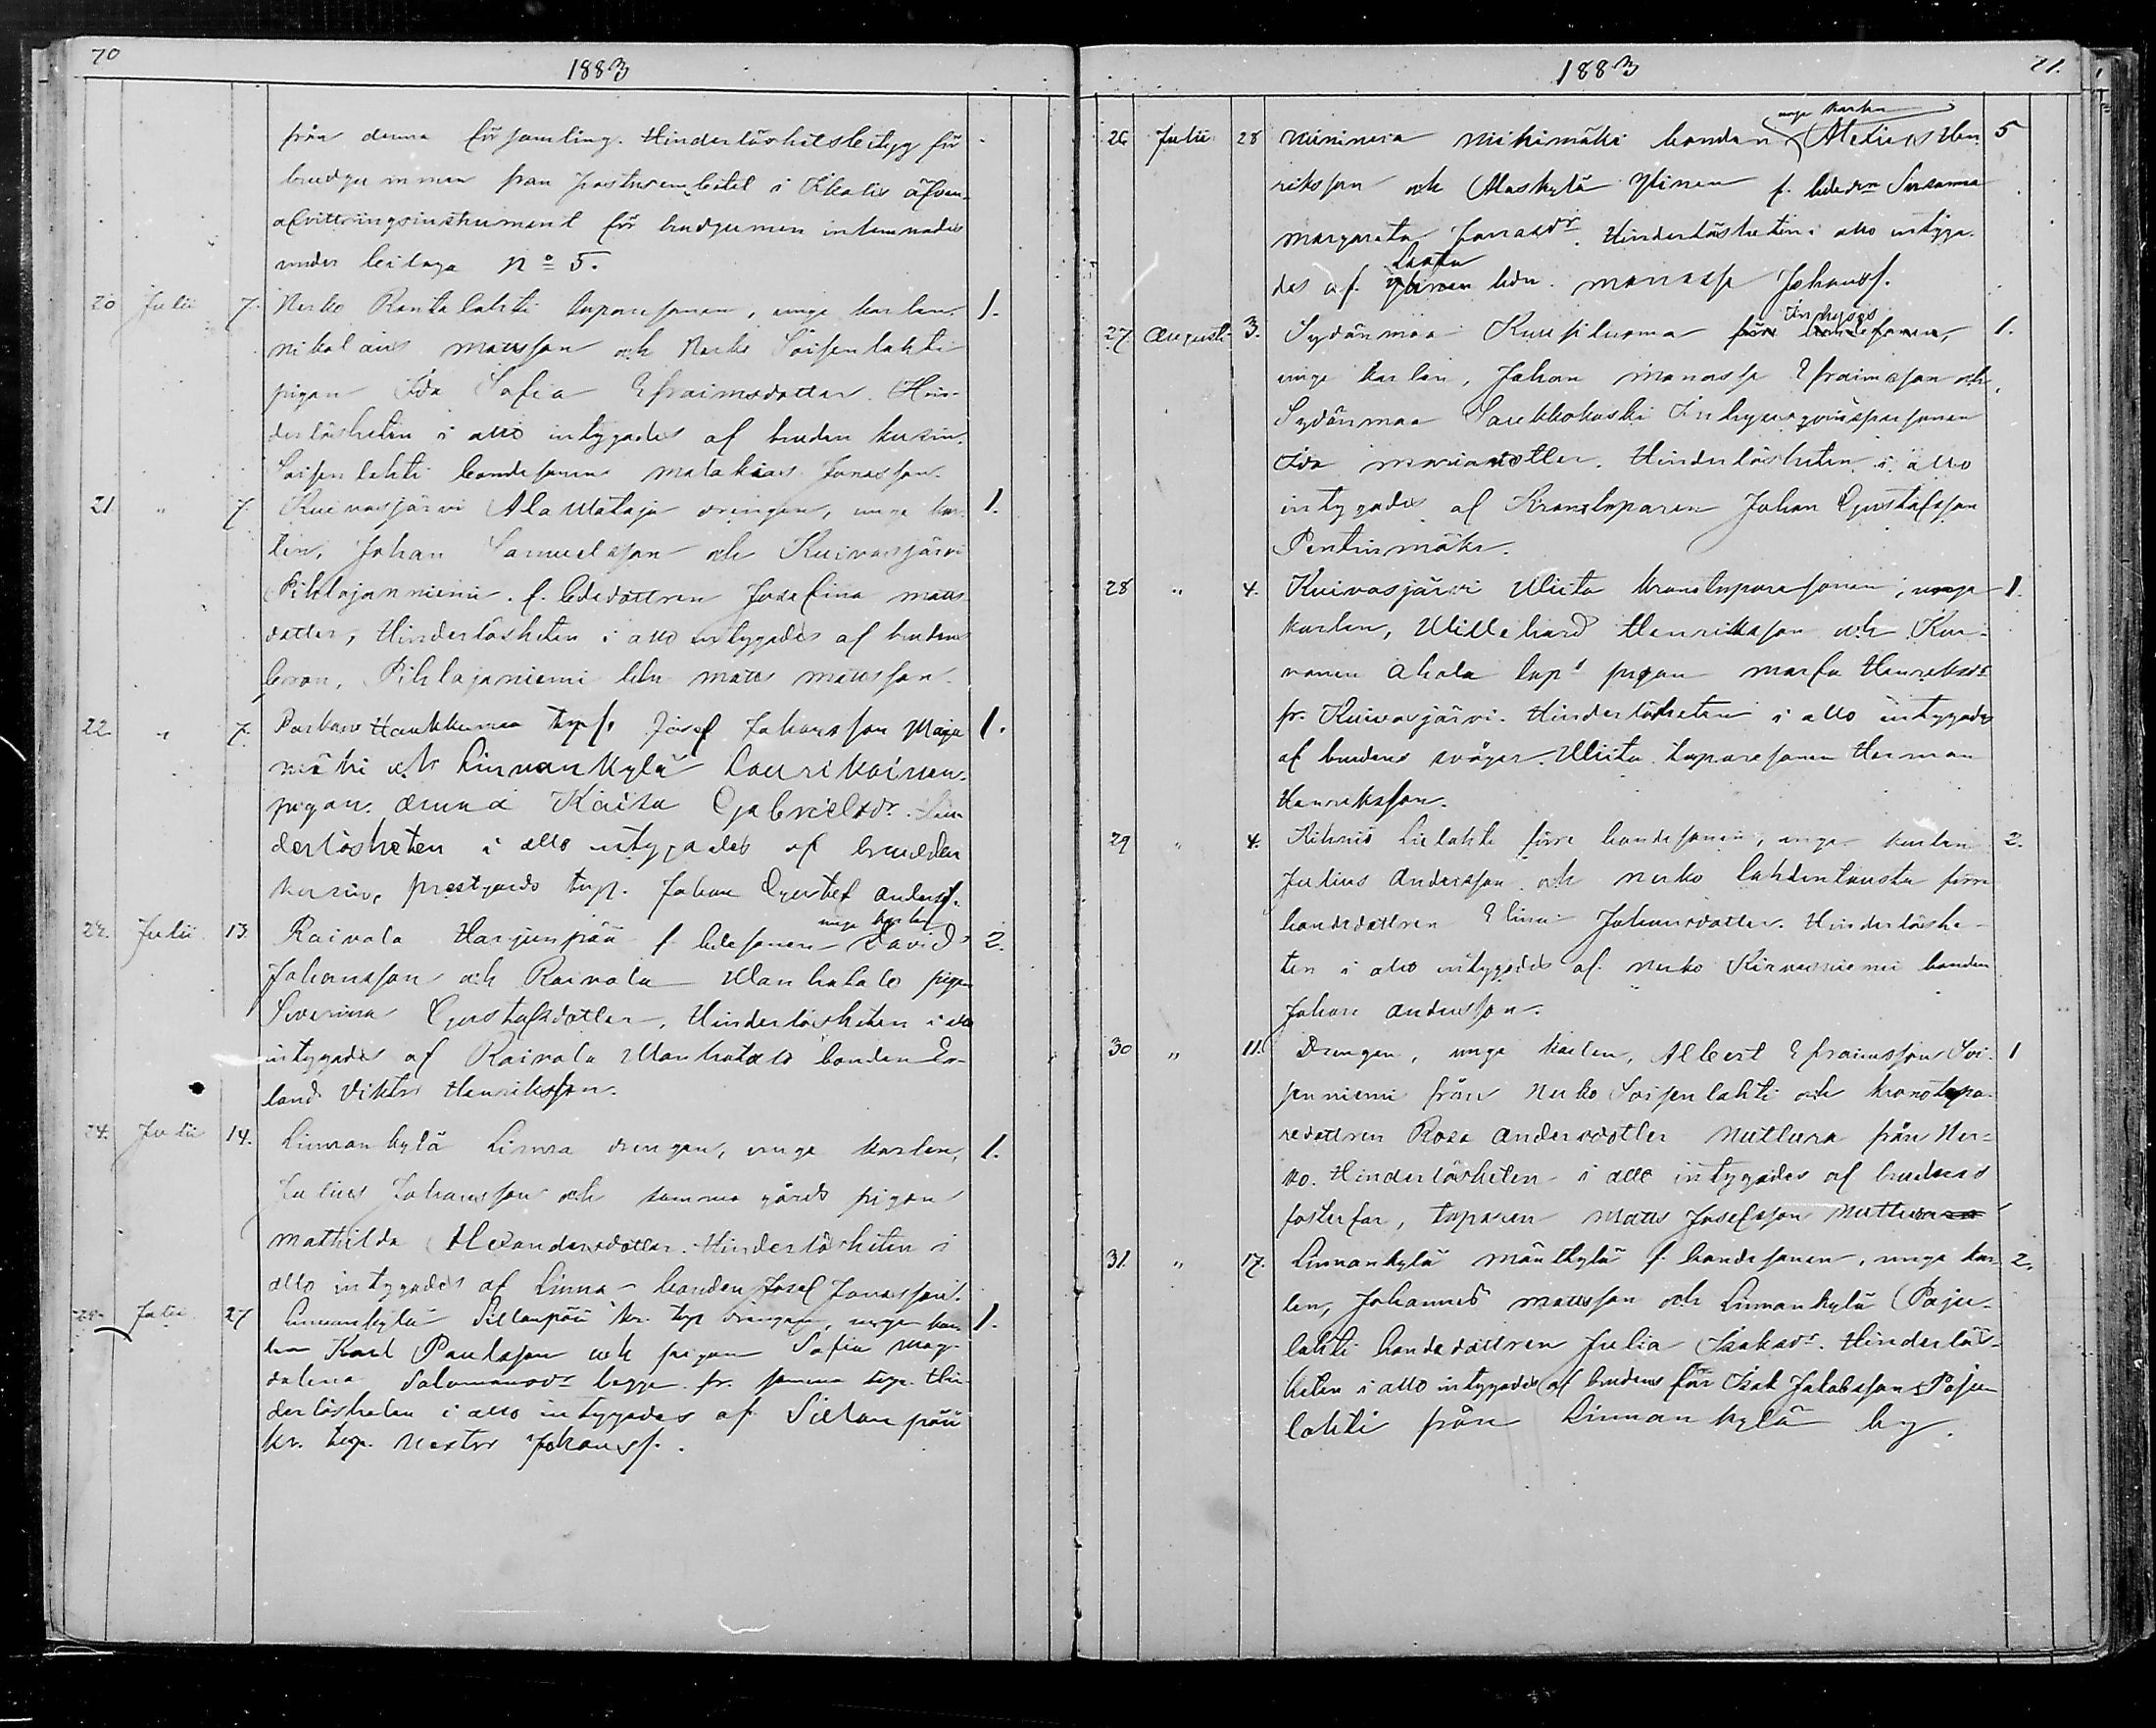 70
1883
från denna församling. Hinderlöshetsbetyg för
brudgummen från pastorsembetet i Ikalis äfven
afvittringsinstrument för brudgummen inlemnades
under bilaga No 5.
20 Julii 7. Nerko Rantalahti torparesonen, unge karlen, 1.
Nikolaus Mattsson och Nerko Soisenlahti
pigan Ida Sofia Efraimsdotter. Hin-
derlösheten i allo intygades af bruden kusin.
Soisenlahti bondesonen Malakias Jonasson.
21 " 7. Kuivasjärvi Ala Mataja drengen, unge kar- 1.
len, Johan Samuelsson och Kuivasjärvi
Pihlajanniemi f. bdedottren Josefina Matts-
dotter, Hinderlösheten i allo intygades af brudens
broran, Pihlajaniemi bdn Matts Mattsson.
22. " 7. Parkano Haukkumaa Josef Johansson Maja 1.
mäki och Linnankylä Laurikainen
pigan Amanda Kaisa Gabrielsdr. Hin
derlösheten i allo intygades af brudens
kusin, prestgårds torp. Johan Gustaf Anderss.
unge karlen
Julii 13. Raivala Harjunpää f. bdesonen David 2.
Johansson och Raivala Vanhatalo pigan
Severina Gustafsdotter, Hinderlösheten i allo
intygades af Raivala Vanhatalo bonden Er-
land Viktor Henriksson.
24. Julii 14. Linnankylä Linna drengen, unge karlen, 1.
Julius Johansson och samma gårds pigan
Mathilda Alexandersdotter. Hinderlösheten i
allo intygades af Linna - bonden Josef Jonasson.
25. Julii 27 Linnankylä Sillanpää kr. torp drengen, unge kar- 1.
len Karl Paulsson och pigan Sofia Mag-
dalena Salomonsdr begge fr. samma torp. Hin-
derlösheten i allo intygades af Sillanpää
kr. torp. Nestor Johanss.
1883
71.
unge karlen
26 Julii 28 Niinineva Mikimäki bonden Alexius Hen- 5
riksson och Alaskylä Ylinen f. bdedrn Susanna
Margareta Jonasdr. Hinderlösheten i allo intyga-
des af Ylinen bdn. Manasse Johanss.
Inhyses
27 Augusti 3. Sydänmaa Kuusiluoma förre bondesonen, 1.
unge karlen, Johan Manasse Efraimsson och
Sydänmaa Saukkokoski Inhyses qvinspersonen
Ida Mariasdotter. Hinderlösheten i allo
intygades af Kronotorparen Johan Gustafsson
Pentinmäki.
28 " 4. Kuivasjärvi Wiita kronotorparesonen, unge 1.
karlen, Willehard Henriksson och Kur-
vanen Ahola torps pigan Maria Henriksdr
fr. Kuivasjärvi. Hinderlösheten i allo intygades
af brudens svåger. Wiita torparesonen Herman
Henriksson.
29 " 4. Kihniö Lielahti förre bondesonen, unge karlen 2.
Julius Andersson och Nerko Lahdentausta förre
bondedottren Elina Johansdotter. Hinderlöshe-
ten i allo intygades af Nerko Kirvesniemi bonden
Johan Andersson.
30 " 11. Drengen, unge karlen, Albert Efraimsson Soi- 1
senniemi från Nerko Soisenlahti och kronotorpa-
redottren Rosa Andersdotter Muttura från Ner-
ko. Hinderlösheten i allo intygades af brudens
fosterfar, torparen Matts Josefsson Muttura
31. " 17. Linnankylä Mäntkylä f. bondesonen, unge kar- 2.
len, Johannes Mattsson och Linnankylä Paju-
lahti bondedottren Julia Isaksdr. Hinderlös-
heten i allo intygades af brudens far Isak Jakobsson Paju
lahti från Linnankylä by.